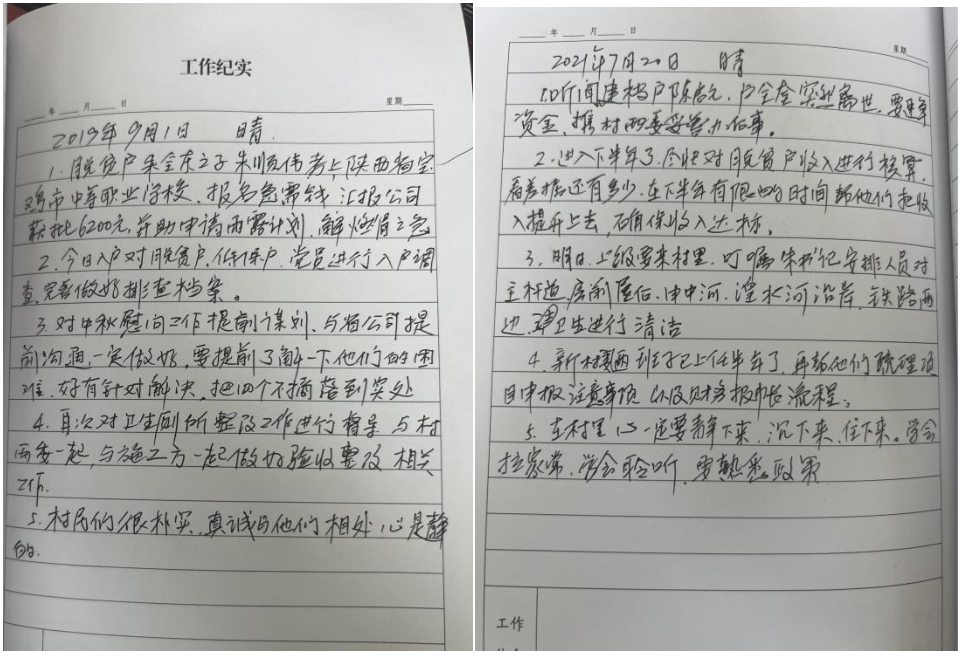 工作纪实
年 月 日 星期
2019年9月1日 晴
1.脱贫户朱全东之子朱顺伟考上陕西省宝
鸡市中等职业学校、报名急需钱、汇报公司
获批6200元,并助申请雨露计划,解燃眉之急
2.今日入户对脱贫户、低保户、党员进行入户调
查,完善做好排查档案。
3.对中秋慰问工作提前谋划、与省公司提
前沟通,一定做好,要提前了解一下他们的困
难、好有针对解决,把四个不摘落到实处
4.再次对卫生厕所整改工作进行督导 与村
两委一起,与施工方一起做好验收整改相关
工作.
5.村民们很朴实,真诚与他们相处 心是静
的.
年 月 日 星期
2021年7月20日 晴
1.听闻建档户陈 户全奎突然离世,要
资金、携村两委妥善办后事。
2.进入下半年了,尽快对脱贫户收入进行核算,
看差距还有多少,在下半年有限的时间帮他们把收
入提升上去,确保收入达标。
3.明日上级要来村里,叮嘱朱书记安排人员对
主村道、房前屋后、申中河、湟水河沿岸、铁路两
边、卫生进行清洁
4.新村两 班子已上任半年了,再帮他们梳理项
目申报注意事项 以及财务报帐流程。
5.在村里心一定要静下来、沉下来、住下来。学会
拉家常、学会聆听、要熟悉政策
工作